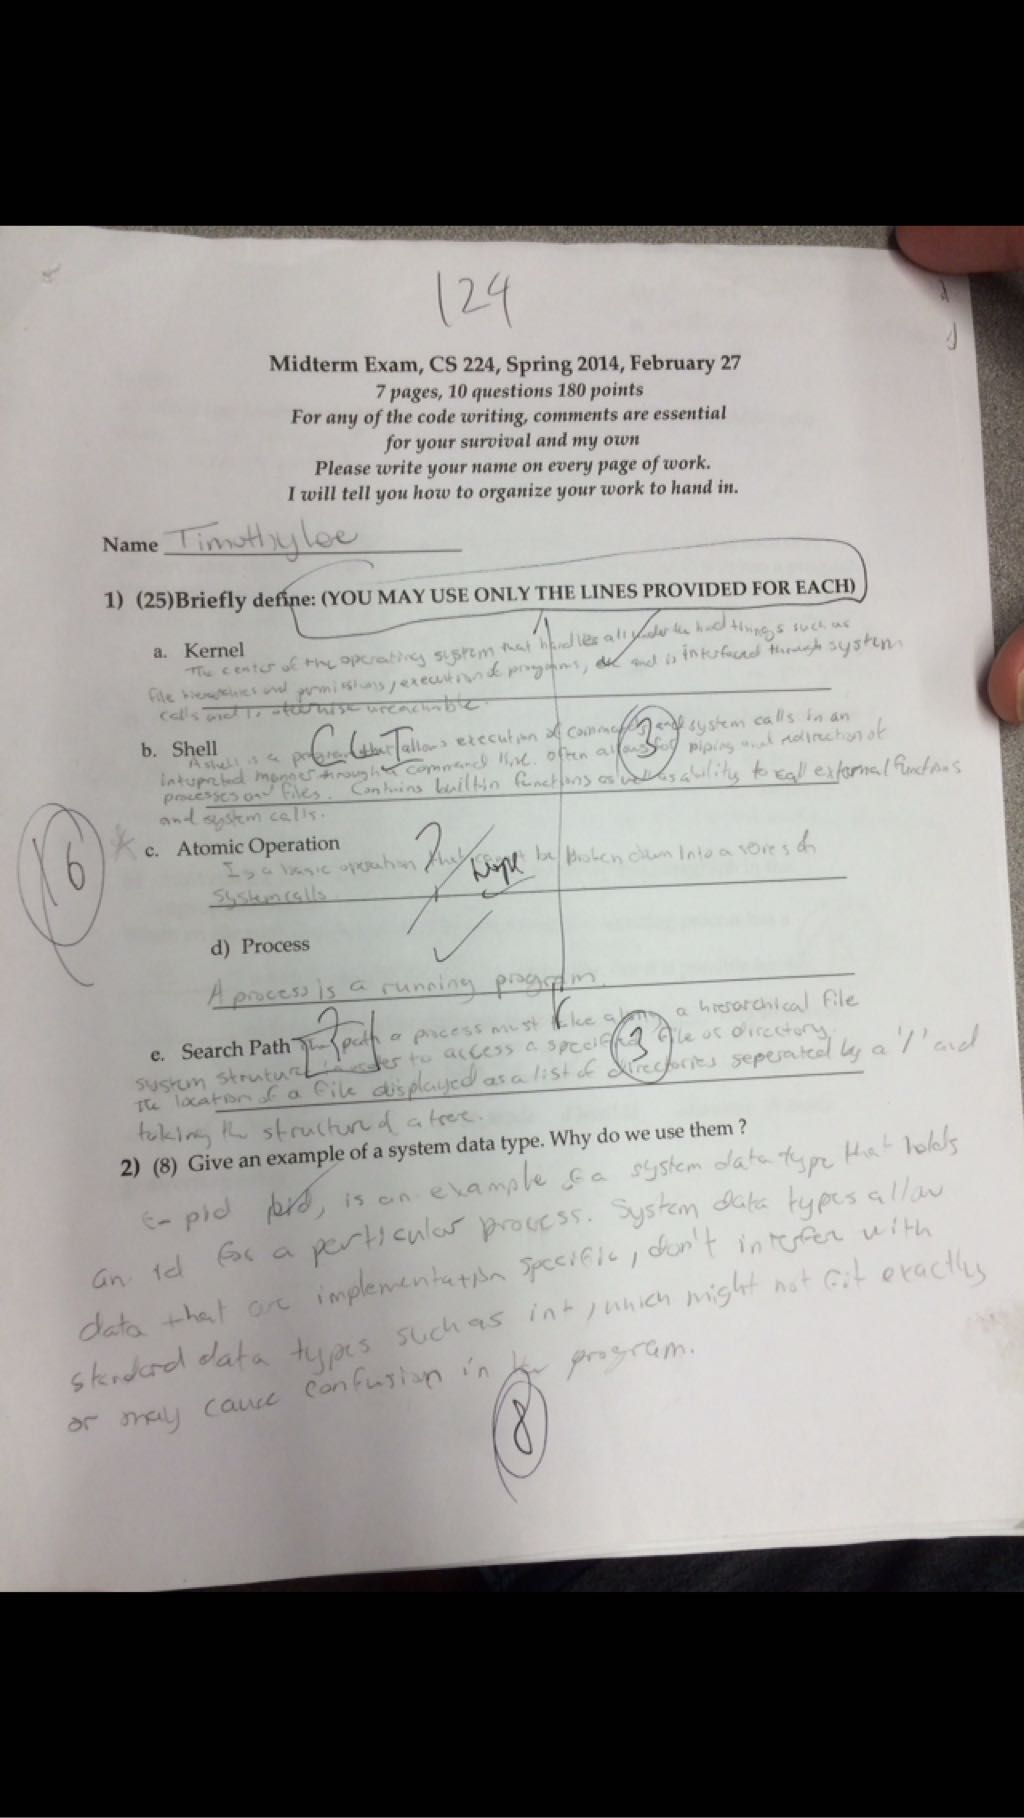 124
Midterm Exam, CS 224, Spring 2014, February 27
7 pages, 10 questions 180 points
For any of the code writing, comments are essential
for your survival and my own
Please write your name on every page of work.
I will tell you how to organize your work to hand in.
Name Timothy Lee
1) (25)Briefly define: (YOU MAY USE ONLY THE LINES PROVIDED FOR EACH)
a. Kernel
The center of the operating system that handles all under the hood things such as
file hierarchies and permissions, execution of programs, and is interfaced through system
calls and is otherwise unreachable.
b. Shell
A shell is a program that allows execution of commands and system calls in an
intuprated manner through a command line. Often allows for piping and redirection of
processes or files. Contains builtin functions as well as ability to call external functions
and system calls.
CLI
3
16
c. Atomic Operation
Is a basic operation that be broken down into a series of
system calls.
? Nope
d) Process
A process is a running program.
e. Search Path The path a process must take along a hierarchical file
system struture in order to access a specific file or directory.
The location of a file displayed as a list of directories seperated by a '/' and
taking the structure of a tree.
?
3
2) (8) Give an example of a system data type. Why do we use them ?
pid, is an example of a system data type that holds
an id for a perticular process. System data types allow
data that are implementation specific, don't interfer with
standard data types such as int, which might not fit exactly
or may cause confusion in program.
8